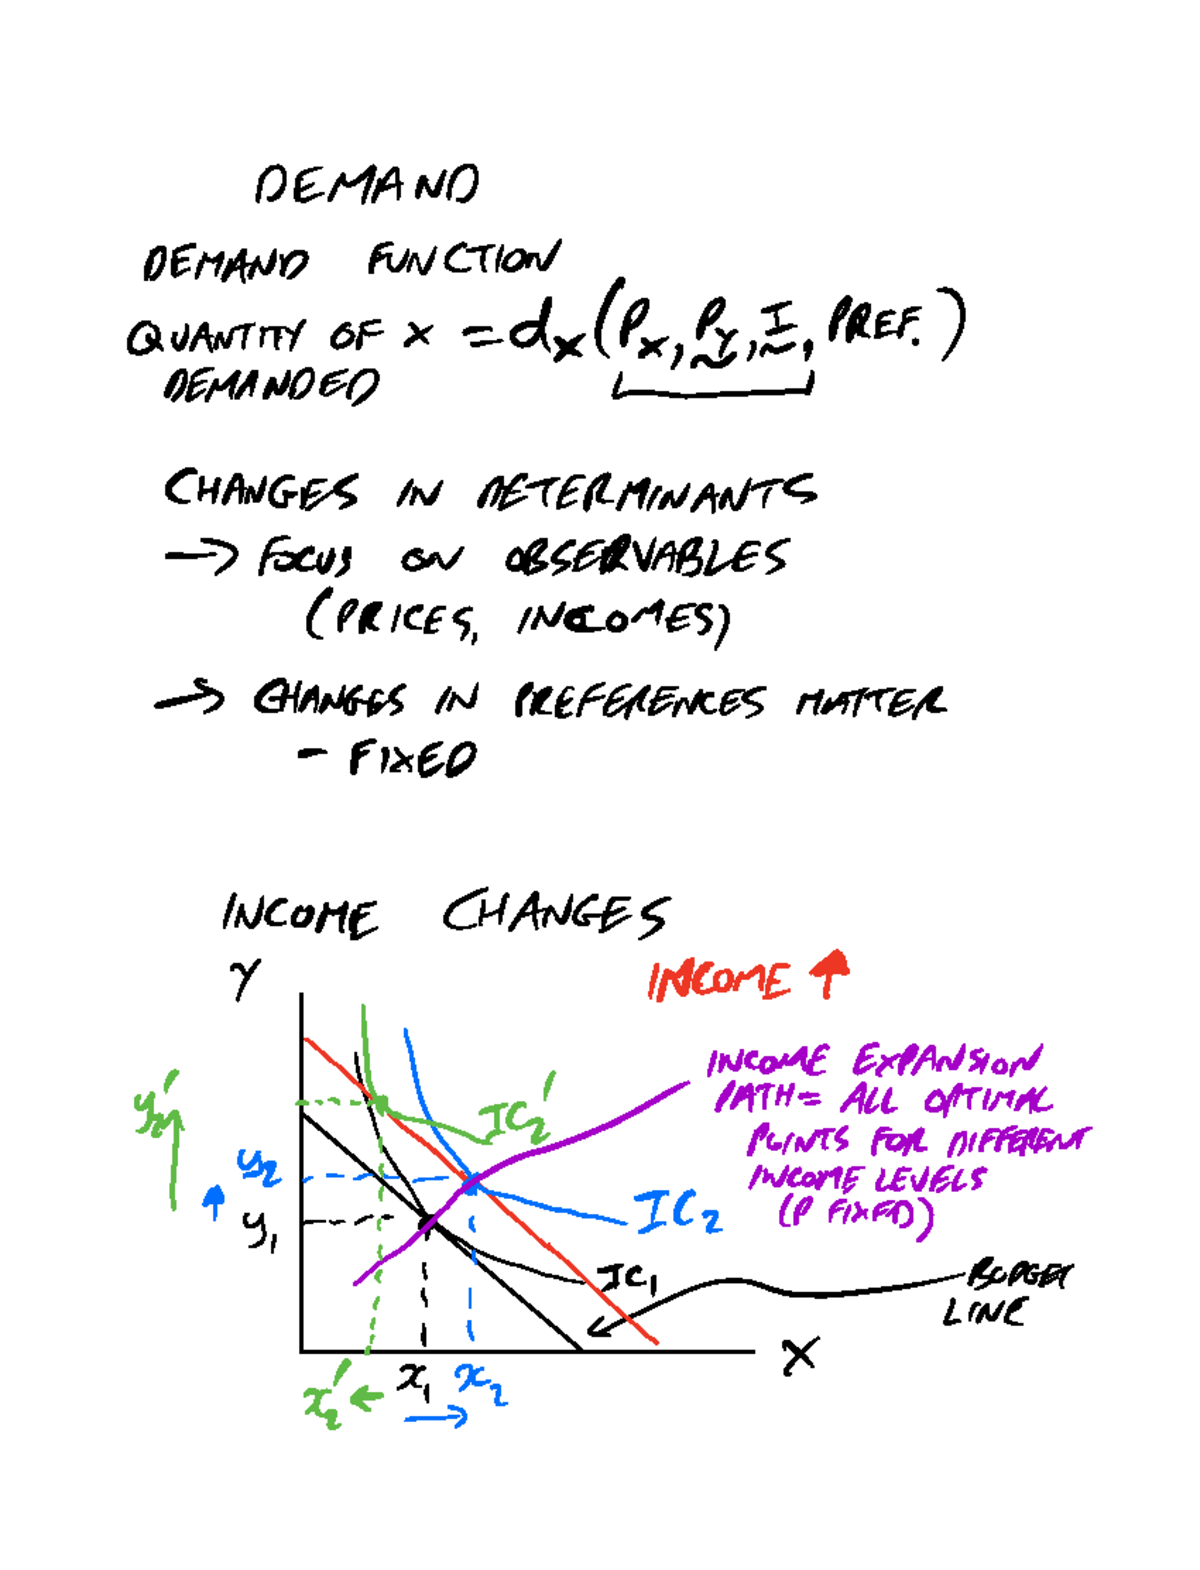 DEMAND
DEMAND FUNCTION
QUANTITY OF X = dx (Px, Py, I, PREF.)
DEMANDED
CHANGES IN DETERMINANTS
→ FOCUS ON OBSERVABLES
(PRICES, INCOMES)
→ CHANGES IN PREFERENCES MATTER
- FIXED
INCOME CHANGES
Y
INCOME ↑
INCOME EXPANSION
PATH = ALL OPTIMAL
POINTS FOR DIFFERENT
INCOME LEVELS
(P FIXED)
y₂'
IC₂'
y₂
↑
IC₂
y₁
IC₁
BUDGET
LINE
X
x₂' ← x₁ x₂
→